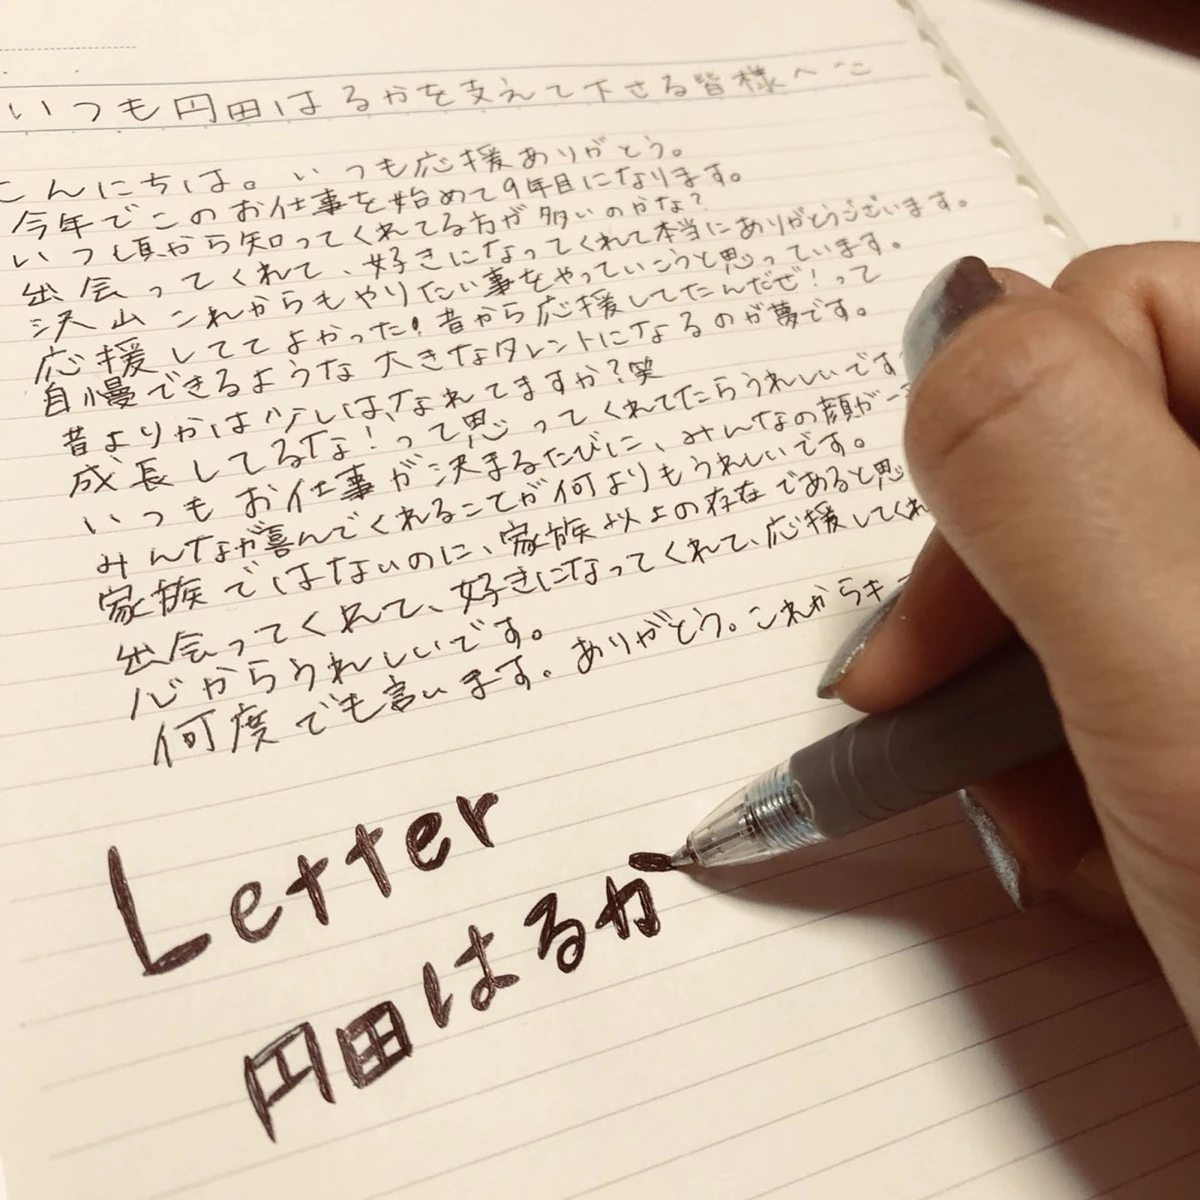 いつも円田はるかを支えて下さる皆様へ
こんにちは。いつも応援ありがとう。
今年でこのお仕事を始めて9年目になります。
いつ頃から知ってくれてる方が多いのかな?
出会ってくれて、好きになってくれて本当にありがとうございます。
沢山これからもやりたい事をやっていこうと思っています。
応援しててよかった!昔から応援してたんだぜ!って
自慢できるような大きなタレントになるのが夢です。
昔よりかは少しは、なれてますか?笑
成長してるな!って思ってくれてたらうれしいです
いつもお仕事が決まるたびに、みんなの顔が
みんなが喜んでくれることが何よりもうれしいです。
家族ではないのに、家族以上の存在であると思
出会ってくれて、好きになってくれて、応援してくれ
心からうれしいです。
何度でも言います。ありがとう。これから
Letter
円田はるか